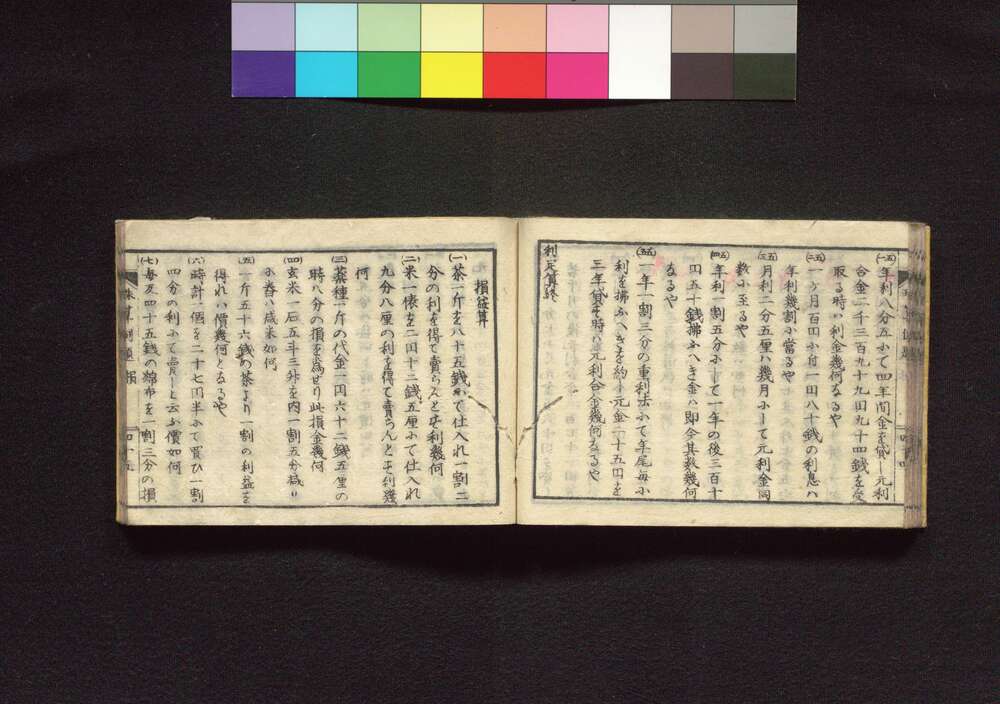 (五一)年利八分五ふて四年間金を貸し元利
合金二千三百九十九円九十四銭を受
取る時ハ利金幾何なるや
(五二)一ヶ月百円ふ付一円八十銭の利息ハ
年利幾割ふ當るや
(五三)月利二分五厘ハ幾月ふして元利金同
数ふ至るや
(五四)年利一割五分ふして一年の後三百十
円五十銭拂ふへき金ハ即今其数幾何
なるや
(五五)一年一割三分の重利法ふて年尾毎ふ
利を拂ふへきを約し元金二十五円を
三年貸す時ハ元利合金幾何なるや
利足算終
損益算
(一)茶一斤を八十五銭ふて仕入れ一割二
分の利を得て賣らんとす利幾何
(二)米一俵を二円十三銭五厘ふて仕入れ
九分八厘の利を得て賣らんとす利幾
何
(三)菜種一斤の代金一円六十二銭五厘の
時八分の損を為せり此損金幾何
(四)玄米一石五斗三升を内一割五分減り
ふ舂ハ成米如何
(五)一斤五十六銭の茶より一割の利益を
得れハ價幾何となるや
(六)時計一個を二十七円半ふて買ひ一割
四分の利ふて賣しと云ふ價如何
(七)毎反四十五銭の綿布を一割三分の損
珠算例題 損
四十五